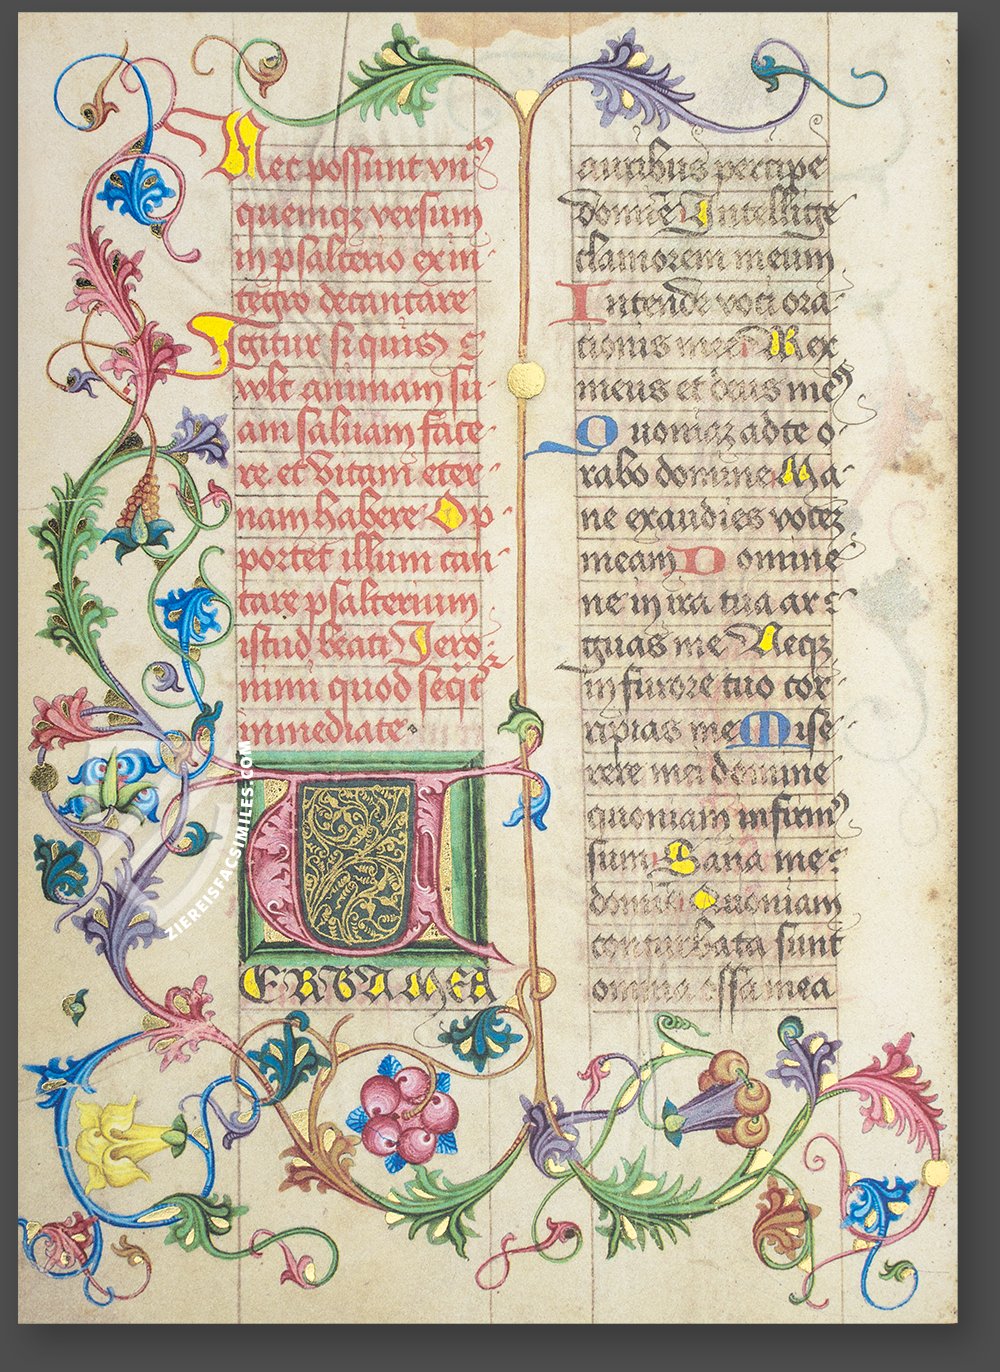 Nec possunt vnū
quemqꝫ versum
in psalterio ex in
tegro decantare
Igitur si quis
wlt animam su
am saluam face
re et vitam eter
nam habere Op
portet illum can
tare psalterium
istud beati Jero
nimi quod seqr̄
immediate
VERBA MEA
auribus percipe
domīe Intellige
clamorem meum
Intende voci ora
cionis mee Rex
meus et deus meꝰ
Quoniaꝫ ad te o
rabo domine Ma
ne exaudies voceꝫ
meam Domine
ne in ira tua ar
guas me Neqꝫ
in furore tuo cor
ripias me Mise
rere mei domine
quoniam infirmꝰ
sum Sana me
domīe Quoniam
conturbata sunt
omnia ossa mea
ZIEREISFACSIMILES.COM